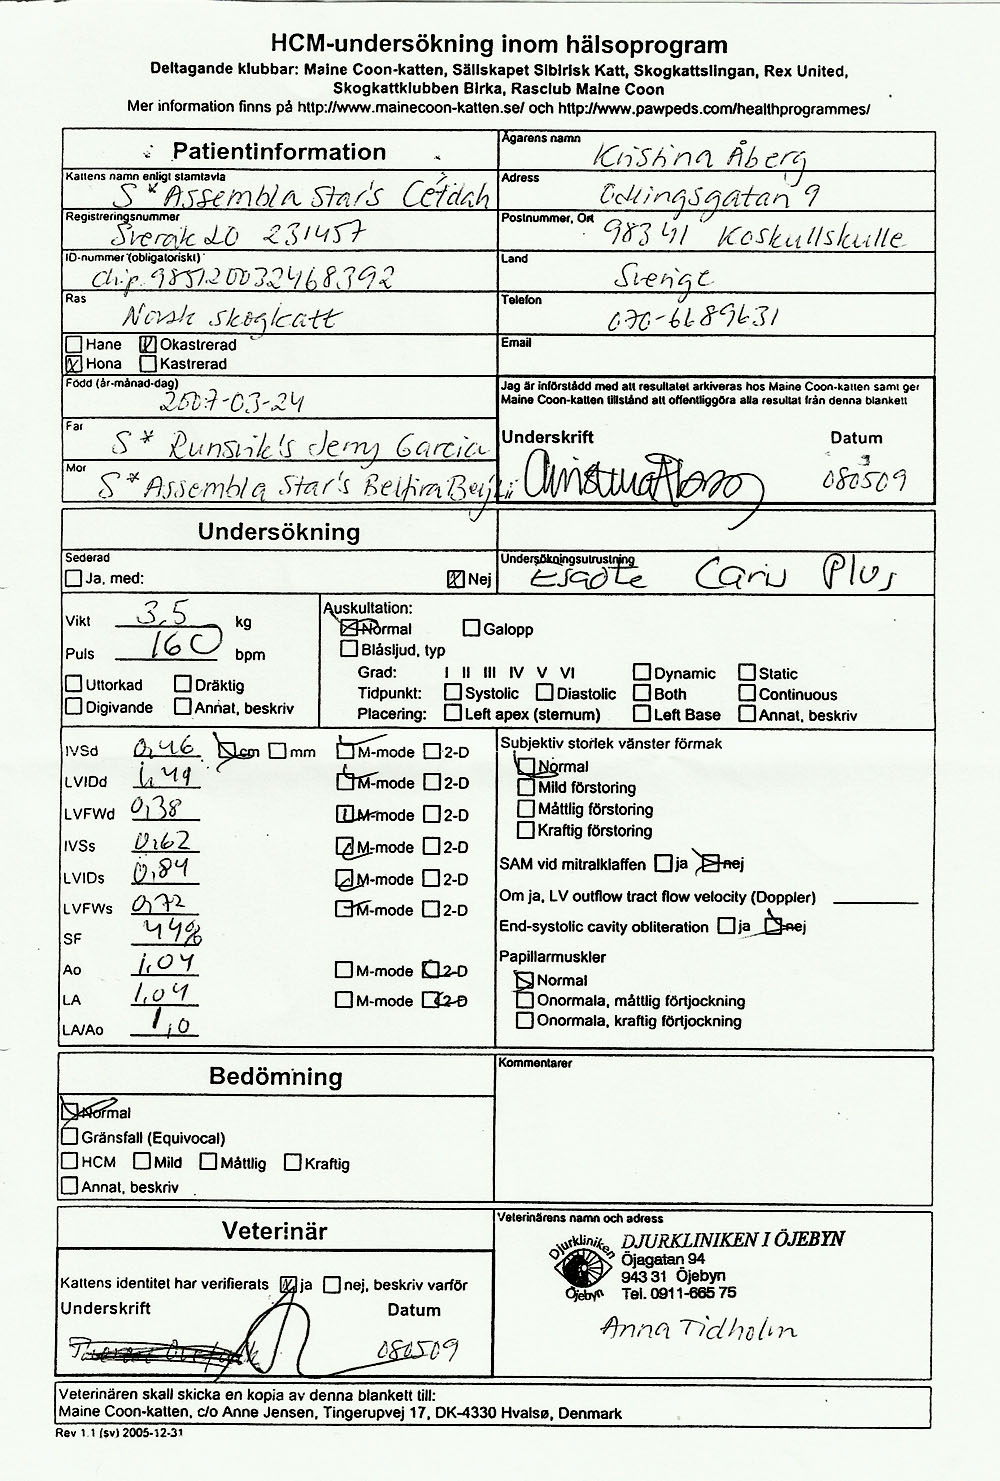 HCM-undersökning inom hälsoprogram
Deltagande klubbar: Maine Coon-katten, Sällskapet Sibirisk Katt, Skogkattslingan, Rex United,
Skogkattklubben Birka, Rasclub Maine Coon
Mer information finns på http://www.mainecoon-katten.se/ och http://www.pawpeds.com/healthprogrammes/
Patientinformation
Kattens namn enligt stamtavla
S* Assembla Star's Cefdah
Registreringsnummer
Sverak LO 231457
ID-nummer (obligatoriskt)
chip. 985120032468392
Ras
Norsk skogkatt
Hane Okastrerad
Hona Kastrerad
Född (år-månad-dag)
2007-03-24
Far
S* Runsvik's Jerry Garcia
Mor
S* Assembla Star's
Ägarens namn
Kristina Åberg
Adress
Odlingsgatan 9
Postnummer, Ort
98341 Koskullskulle
Land
Sverige
Telefon
070-6689631
Email
Jag är införstådd med att resultatet arkiveras hos Maine Coon-katten samt ger
Maine Coon-katten tillstånd att offentliggöra alla resultat från denna blankett
Underskrift Datum
080509
Undersökning
Sederad
Ja, med: Nej
Undersökningsutrustning
Esaote Caris Plus
Vikt 3,5 kg
Puls 160 bpm
Uttorkad Dräktig
Digivande Annat, beskriv
Auskultation:
Normal Galopp
Blåsljud, typ
Grad: I II III IV V VI Dynamic Static
Tidpunkt: Systolic Diastolic Both Continuous
Placering: Left apex (sternum) Left Base Annat, beskriv
IVSd 0,46 cm mm M-mode 2-D
LVIDd 1,49 M-mode 2-D
LVFWd 0,38 M-mode 2-D
IVSs 0,62 M-mode 2-D
LVIDs 0,84 M-mode 2-D
LVFWs 0,72 M-mode 2-D
SF 44%
Ao 1,04 M-mode 2-D
LA 1,04 M-mode 2-D
LA/Ao 1,0
Subjektiv storlek vänster förmak
Normal
Mild förstoring
Måttlig förstoring
Kraftig förstoring
SAM vid mitralklaffen ja nej
Om ja, LV outflow tract flow velocity (Doppler)
End-systolic cavity obliteration ja nej
Papillarmuskler
Normal
Onormala, måttlig förtjockning
Onormala, kraftig förtjockning
Bedömning
Normal
Gränsfall (Equivocal)
HCM Mild Måttlig Kraftig
Annat, beskriv
Kommentarer
Veterinär
Kattens identitet har verifierats ja nej, beskriv varför
Underskrift Datum
080509
Veterinärens namn och adress
Djurkliniken
Öjebyn
DJURKLINIKEN I ÖJEBYN
Öjagatan 94
943 31 Öjebyn
Tel. 0911-665 75
Anna Tidholm
Veterinären skall skicka en kopia av denna blankett till:
Maine Coon-katten, c/o Anne Jensen, Tingerupvej 17, DK-4330 Hvalsø, Denmark
Rev 1.1 (sv) 2005-12-31